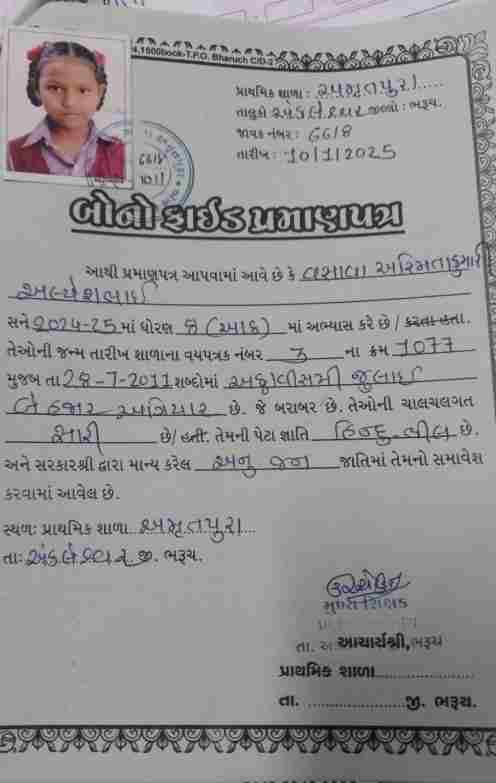 4,1500book-T.P.O. Bharuch C/D-2
પ્રાથમિક શાળા : અમૃતપુરા
તાલુકો અંકલેશ્વર જીલ્લો : ભરૂચ.
જાવક નંબર : 6618
તારીખ : 10/1/2025
6618
10/1
બોનોફાઈડ પ્રમાણપત્ર
આથી પ્રમાણપત્ર આપવામાં આવે છે કે વસાવા અસ્મિતાકુમારી
અલ્પેશભાઈ
સને 2024-25 માં ધોરણ 8 (આઠ) માં અભ્યાસ કરે છે / કરતા હતા.
તેઓની જન્મ તારીખ શાળાના વયપત્રક નંબર 3 ના ક્રમ 1077
મુજબ તા 28-7-2011 શબ્દોમાં અઠ્ઠાવીસમી જુલાઈ
બે હજાર અગિયાર છે. જે બરાબર છે. તેઓની ચાલચલગત
સારી છે/ હતી. તેમની પેટા જ્ઞાતિ હિન્દુ ભીલ છે.
અને સરકારશ્રી દ્વારા માન્ય કરેલ અનુ જન જાતિમાં તેમનો સમાવેશ
કરવામાં આવેલ છે.
સ્થળ: પ્રાથમિક શાળા અમૃતપુરા
તા: અંકલેશ્વર જી. ભરૂચ.
મુખ્ય શિક્ષક
તા. અ આચાર્યશ્રી, ભરૂચ
પ્રાથમિક શાળા
તા. જી. ભરૂચ.